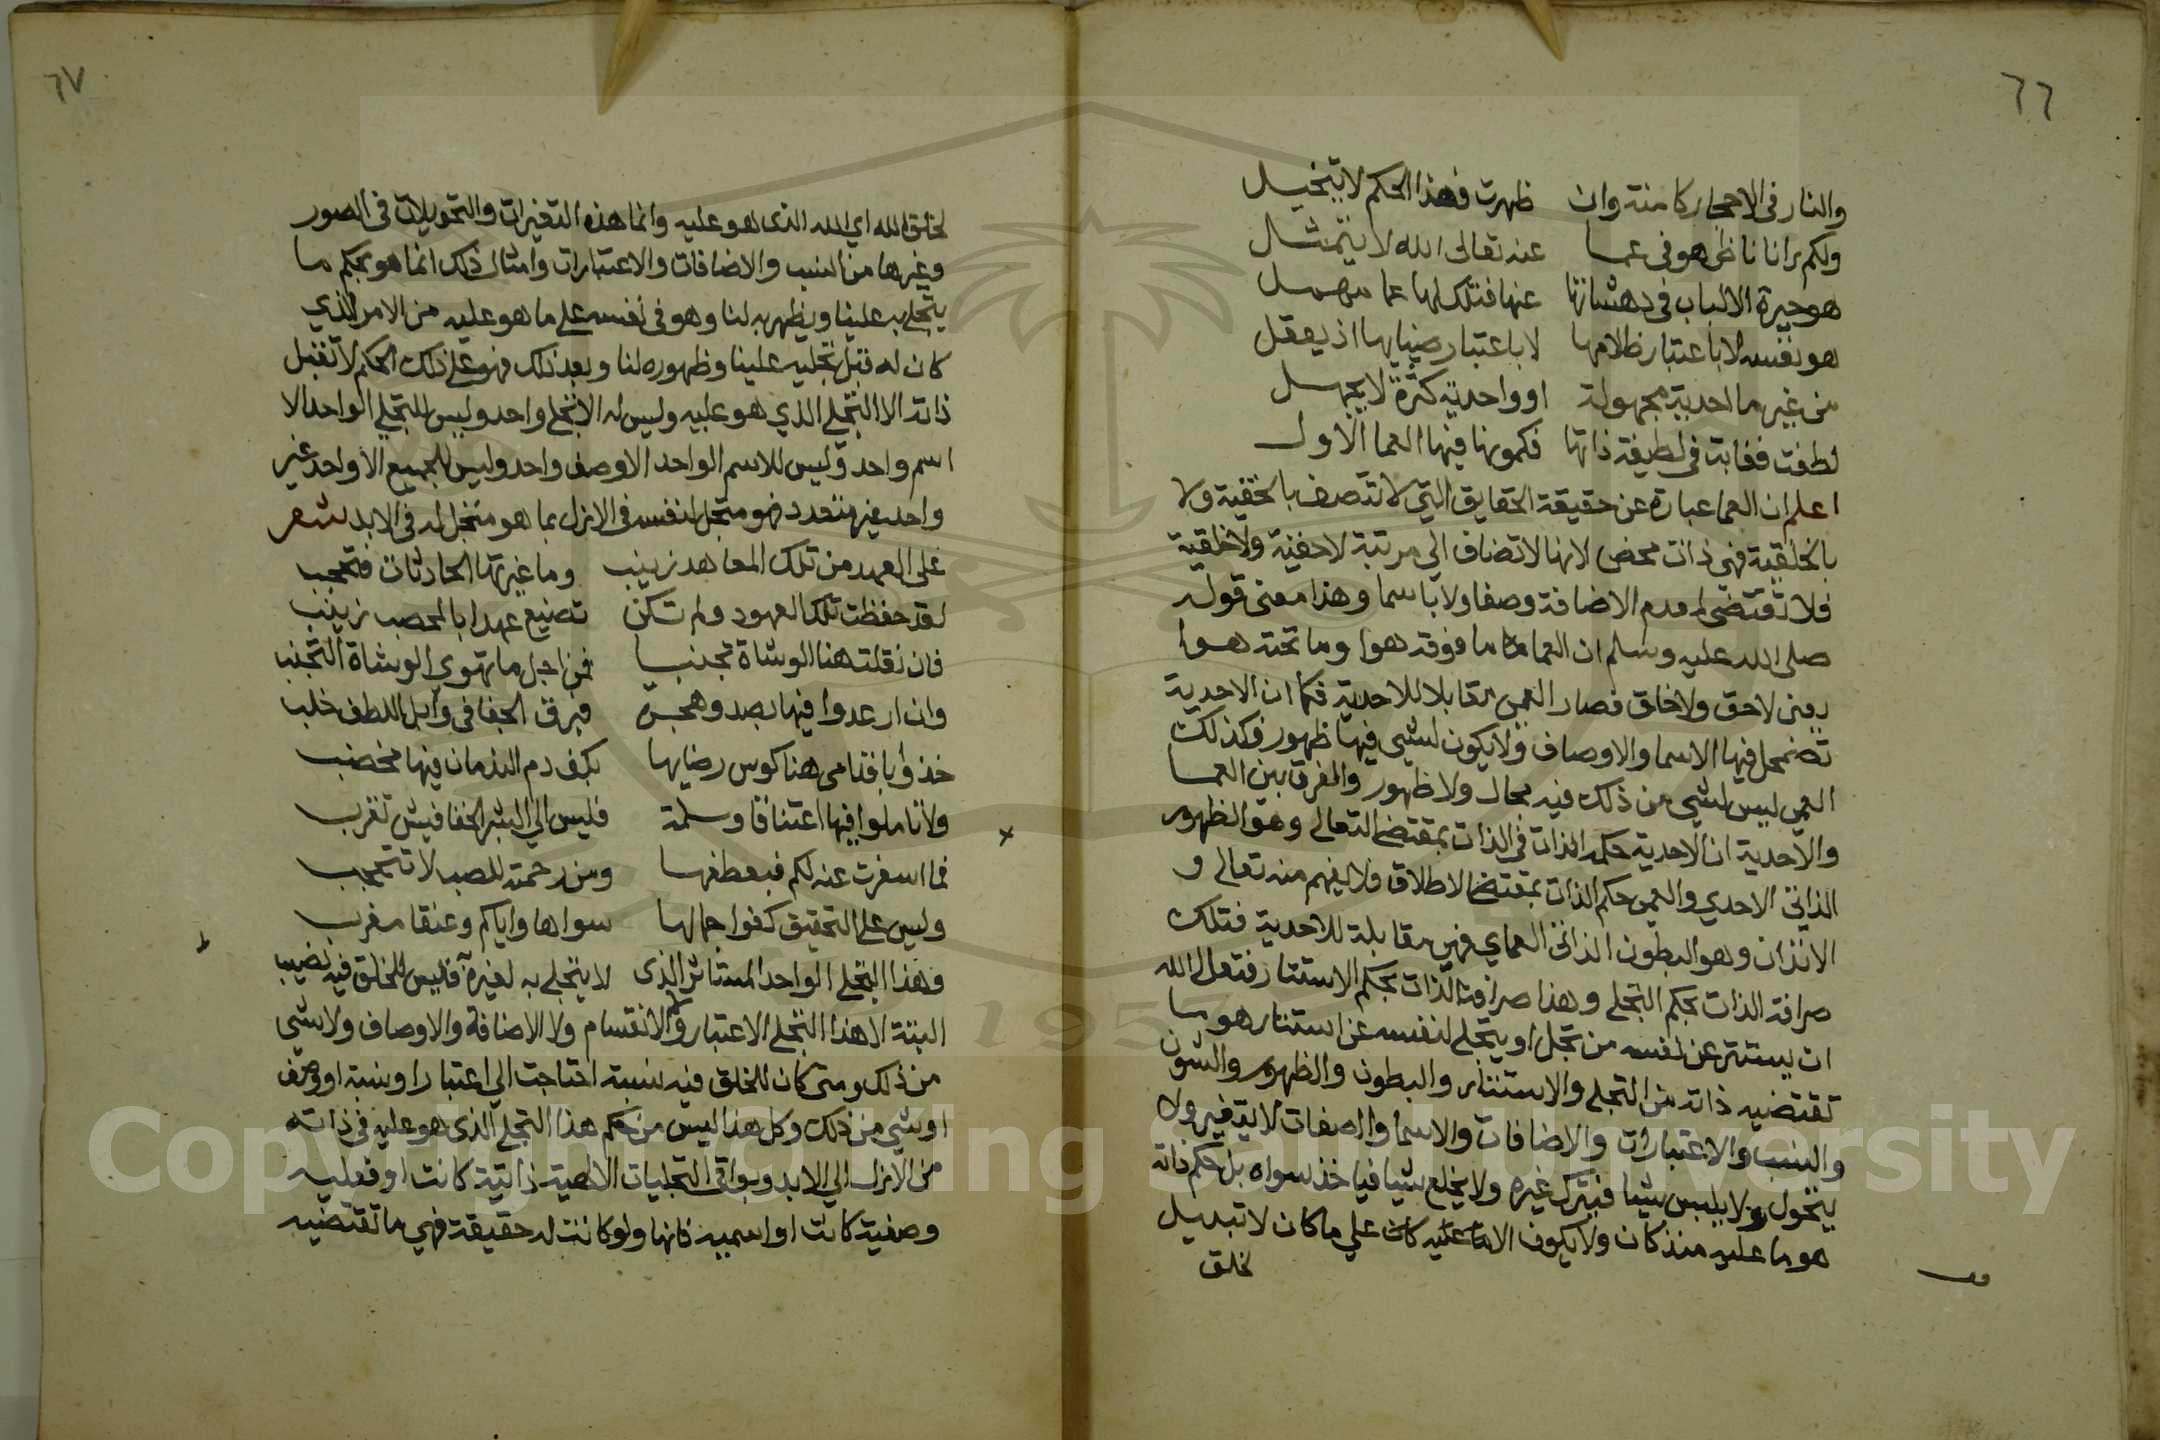 ٦٦
والنار في الاحجار كامنة وان ظهرت فهذا الحكم لا يتخيل
ولكم رانا ناظر هو في عما عنه تعالى الله لا يتمثل
هو حيرة الالباب في دهشاتها عنها فتلك لها عما مهمل
هو نفسه لا باعتبار ظلامها لا باعتبار ضيايها اذ يعقل
من غير ما احدية مجهولة او واحدية كثرة لا يجهل
لطفت فغابت في لطيفة ذاتها فكمونها فيها العما الاول
اعلم ان العما عبارة عن حقيقة الحقايق التي لا تتصف بالحقية ولا
بالخلقية فهي ذات محض لانها لا تضاف الي مرتبة لا حقية ولا خلقية
فلا تقتضي لعدم الاضافة وصفا ولا باسما وهذا معنى قوله
صلى الله عليه وسلم ان العما ما فوقه هوا وما تحته هوا
يعني لا حق ولا خلق فصار العمي مقابلا للاحدية فكما ان الاحدية
تضمحل فيها الاسما والاوصاف ولا يكون لشي فيها ظهور فكذلك
العمي ليس لشي من ذلك فيه مجال ولا ظهور والفرق بين العما
والاحدية ان الاحدية حكم الذات في الذات بمقتضى التعالي وهو الظهور
الذاتي الاحدي والعمي حكم الذات بمقتضى الاطلاق فلا يفهم منه تعالي و
الانذان وهو البطون الذاتي العماي فهي مقابلة للاحدية فتلك
صرافة الذات بحكم التجلي وهذا صرافة الذات بحكم الاستتار فتعالى الله
ان يستتر عن نفسه من تجل او يتجلي لنفسه عن استتار هو ما
تقتضيه ذاته من التجلي والاستتار والبطون والظهور والشون
والنسب والاعتبارات والاضافات والاسما والصفات لا يتغير ولا
يتحول ولا يلبس شيا فيترك غيره ولا يخلع شيا فياخذ سواه بل حكم ذاته
هو ما عليه منذ كان ولا يكون الا ما عليه كان علي ما كان لا تبديل
لخلق
٦٧
لخلق الله اي لله الذي هو عليه وانما هذه التغيرات والتحويلات في الصور
وغيرها من النسب والاضافات والاعتبارات وامثال ذلك انما هو بحكم ما
يتجلي به علينا ويظهر به لنا وهو في نفسه علي ما هو عليه من الامر الذي
كان له قبل تجليه علينا وظهوره لنا وبعد ذلك فهو علي ذلك الحكم لا تقبل
ذاته الا التجلي الذي هو عليه وليس له الا تجلي واحد وليس للتجلي الواحد الا
اسم واحد وليس للاسم الواحد الا وصف واحد وليس للجميع الا واحد غير
واحد غير متعدد فهو متجل لنفسه في الازل بما هو متجل له في الابد شعر
علي العهد من تلك المعاهد زينب وما غيرتها الحادثات فتحجب
لقد حفظت تلك العهود ولم تكن تضيع عهدا بالمحصب زينب
فان نقلت هنا الوشاة تجنبا فمن اجل ما تهوي الوشاة التجنب
وان ارعدوا فيها بصد وهجرة فبرق الجفا في وابل اللطف خلب
خذوا يا فدامى هنا كوس رضابها بكف دم الندمان فيها مخضب
ولا تاملوا فيها اعتناقا وسلمة فليس الي البشر الخفافيش تقرب
فما اسفرت عنه لكم فبعطفها ومن رحمة للصب لا تتحجب
وليس علي التحقيق كفوا جمالها سواها واياكم وعنقا مغرب
وهذا التجلي الواحد المستاثر الذي لا يتجلي به لغيره فليس للخلق فيه نصيب
البتة لا هذا التجلي الاعتبار ولا الانقسام ولا الاضافة والاوصاف ولا شي
من ذلك ومتي كان للخلق فيه نسبة احتاجت الي اعتبار او نسبة او وصف
او شي من ذلك وكل هذا ليس من حكم هذا التجلي الذي هو عليه في ذاته
من الازل الي الابد وبواقي التجليات الالهية ذاتية كانت او فعلية
وصفية كانت او اسمية فانها ولو كانت له حقيقة فهي ما تقتضيه
Copyright © King Saud University
1957